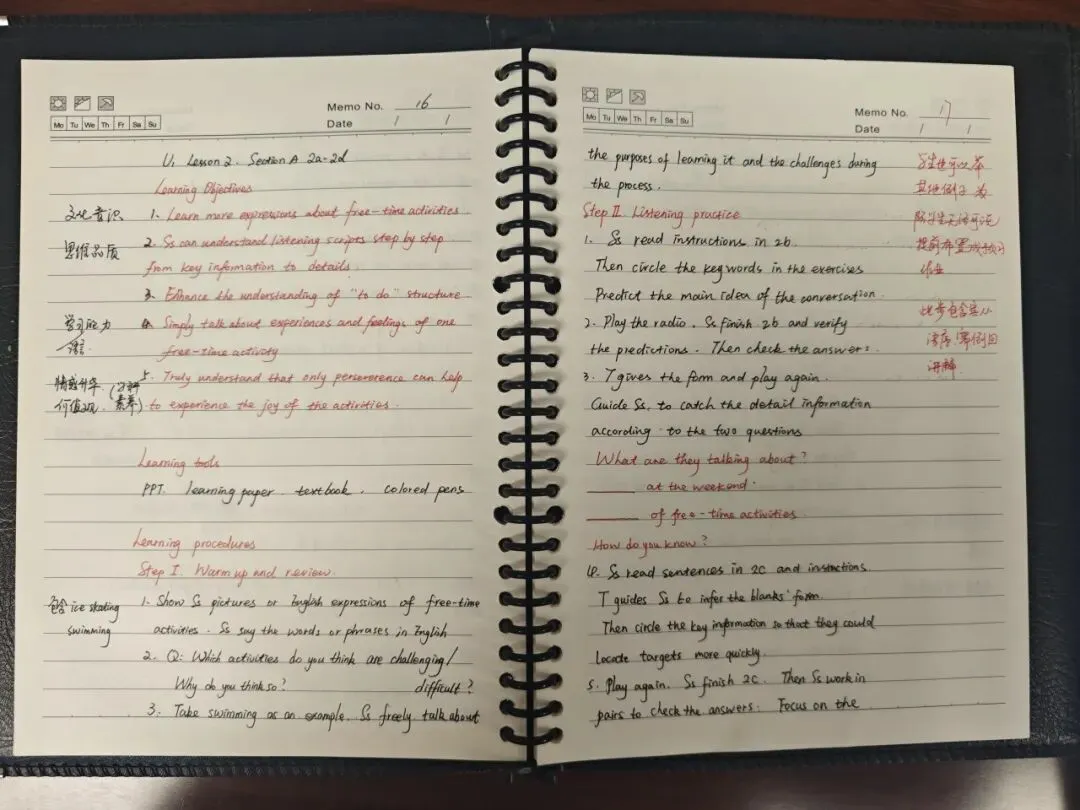 Memo No. 16
Mo Tu We Th Fr Sa Su
Date / /
U1 Lesson 2. Section A 2a-2d
Learning Objectives
文化意识 1. Learn more expressions about free-time activities.
思维品质 2. Ss can understand listening scripts step by step
from key information to details.
3. Enhance the understanding of "to do" structure
学习能力 4. Simply talk about experiences and feelings of one
语言 free-time activity
情感升华 5. Truly understand that only persererence can help
价值观 to experience the joy of the activities.
Learning tools
PPT. learning paper. textbook. colored pens
Learning procedures
Step I. Warm up and review.
含 ice skating 1. Show Ss pictures or English expressions of free-time
swimming activities. Ss say the words or phrases in English
2. Q: Which activities do you think are challenging/
Why do you think so? difficult?
3. Take swimming as an example. Ss freely talk about
Memo No. 17
Mo Tu We Th Fr Sa Su
Date / /
the purposes of learning it and the challenges during 学生也可以举
the process. 其他例子
Step II. Listening practice
1. Ss read instructions in 2b. 提前布置预习
Then circle the key words in the exercises 作业
Predict the main idea of the conversation.
2. Play the radio. Ss finish 2b and verify
the predictions. Then check the answers.
3. T gives the form and play again. 讲解
Guide Ss. to catch the detail information
according to the two questions
What are they talking about?
____ at the weekend.
____ of free-time activities.
How do you know?
4. Ss read sentences in 2c and instructions.
T guides Ss to infer the blanks' form.
Then circle the key information so that they could
locate targets more quickly.
5. Play again. Ss finish 2C. Then Ss work in
pairs to check the answers. Focus on the